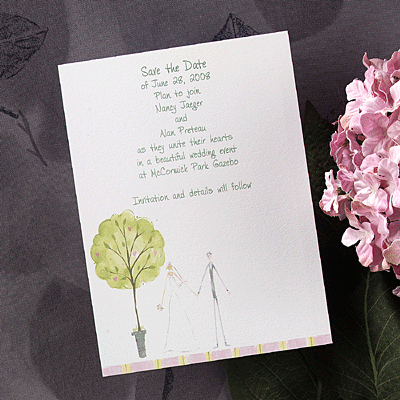 Save the Date
of June 28, 2008
Plan to join
Nancy Jaeger
and
Alan Preteau
as they unite their hearts
in a beautiful wedding event
at McCormick Park Gazebo
Invitation and details will follow